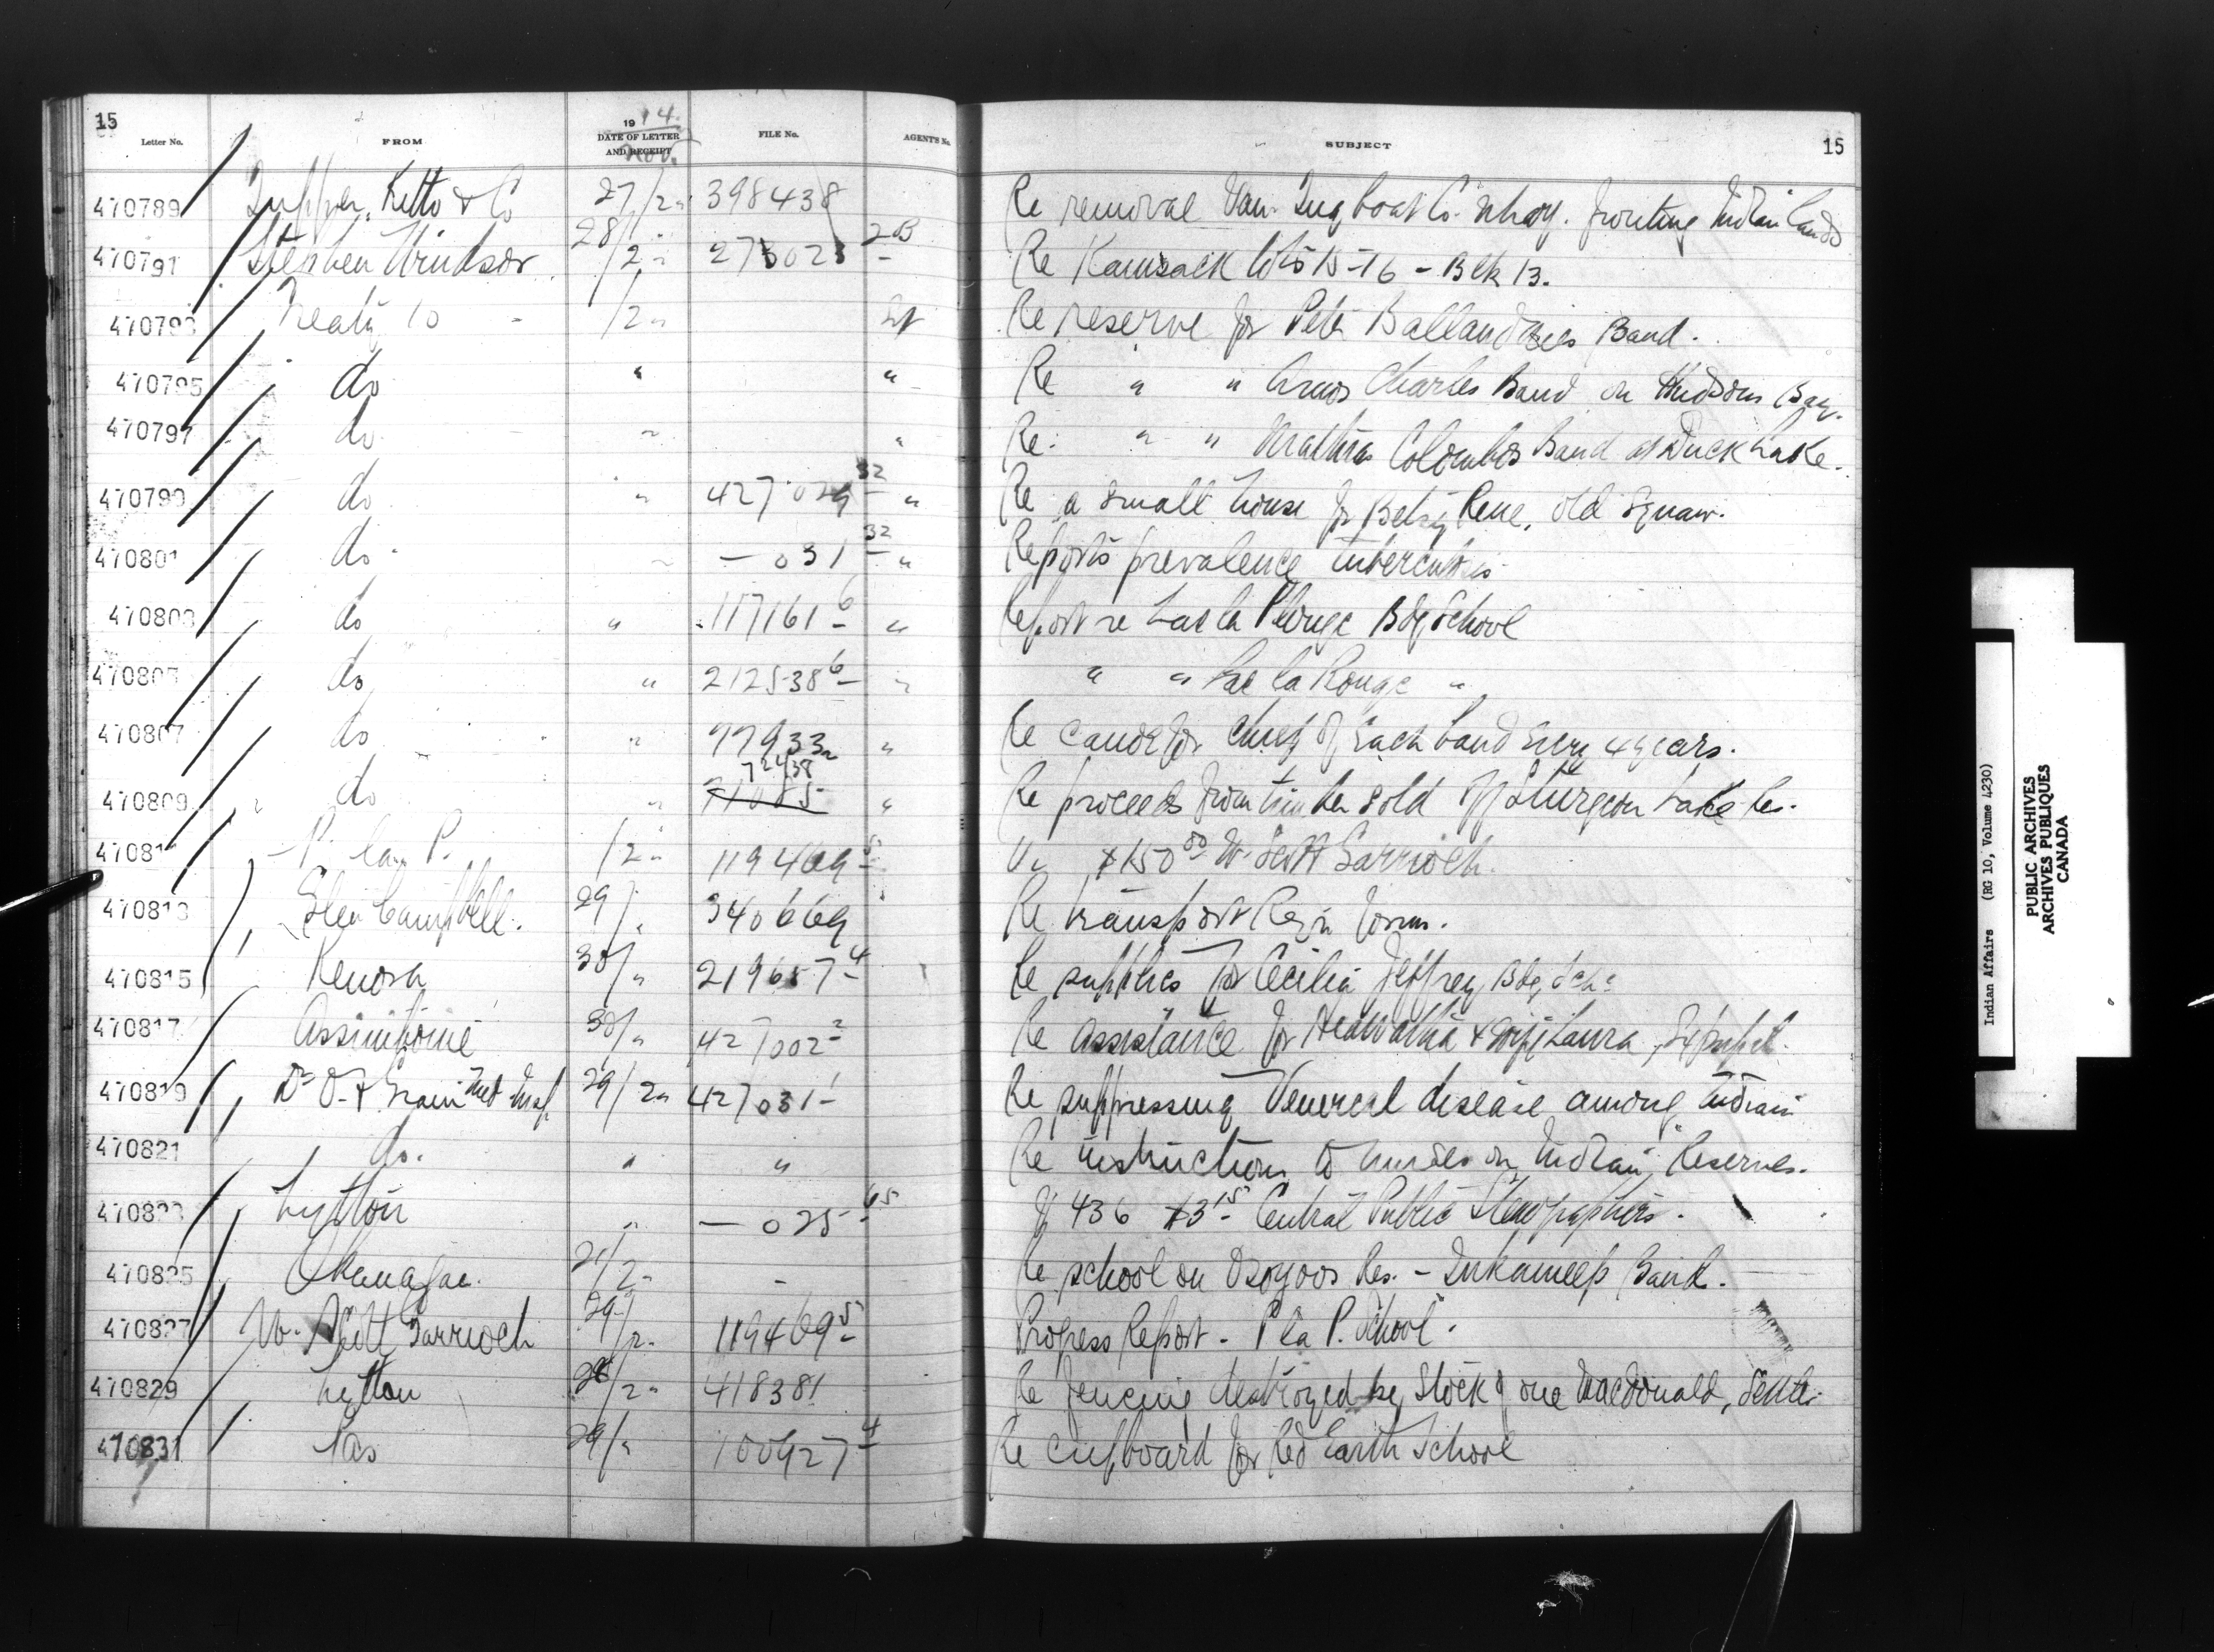 15
Letter No. FROM 1914. DATE OF LETTER AND RECEIPT Nov. FILE No. AGENT'S No. SUBJECT 15
470789 Tupper, Kitto & Co 27/2 " 398438 Re removal Van. Tug boat Co. fronting Indian lands
470791 Stephen Windsor 28/2 " 273023 2B Re Kamsack lots 15-16 - Blk 13.
470793 Treaty 10 /2 " Re reserve for Peter Ballandines Band.
470795 do " " Re " " Amos Charles Band on Hudsons Bay.
470797 do " " Re " " Colombos Band at Duck Lake.
470799 do " 427029 32 " Re a small house for Betsy Rene, old Squaw.
470801 do " — 031 32 " Reports prevalence tuberculosis
470803 do " 117161 6 " Report re Lac la Plonge Bdg School
470805 do " 212538 6 " " " Lac la Ronge "
470807 do " 77933 " Re for Chief of each band every 4 years.
470809 do " 722438 " Re proceeds from timber sold off Sturgeon Lake Res.
47081 P. la P. /2 " 119469 5 $150 00 W. Scott Garrioch.
470813 Glen Campbell. 29/ " 340669 Re transport Regn forms.
470815 Kenora 30/ " 219657 4 Re supplies for Cecilia Jeffrey Bdg Sch:
470817 Assiniboine 30/ " 427002 2 Re assistance for Hiawatha & wife Laura, Ex pupil.
470819 Dr O. I. Grain Med Insp 29/2 " 427031 1 Re suppressing Venereal disease among Indians
470821 do. " " Re instructions to nurses on Indian Reserves.
470823 Lytton " — 025 65 436 $3 15 Central Public Stenographers.
470825 Okanagan. 21/2 " - Re school on Osoyoos Res. - Inkameep Band.
470827 W. Scott Garrioch 29/2 " 119469 5 Progress Report - P la P. School.
470829 Lytton 28/2 " 418381 Re fencing destroyed by Stock of one MacDonald, Settler
470831 Pas 29/ " 100927 4 Re cupboard for Red Earth School
Indian Affairs (RG 10, Volume 4230)
PUBLIC ARCHIVES
ARCHIVES PUBLIQUES
CANADA